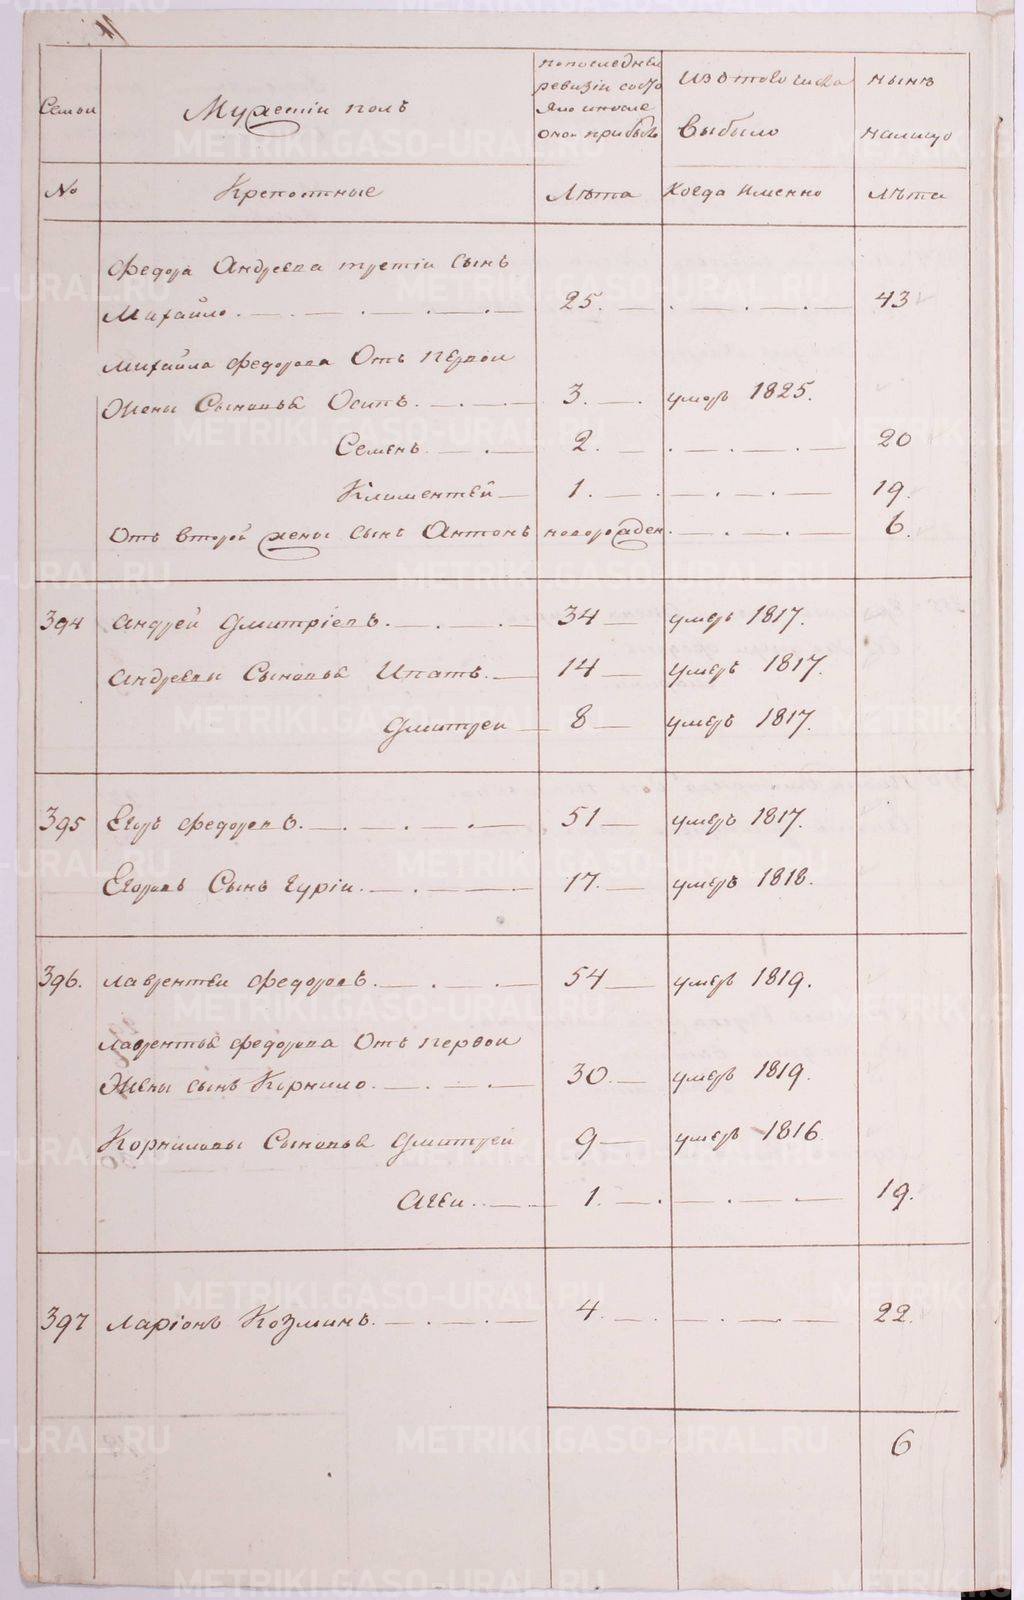 Семьи
Мужескiи полъ
попоследнеи
ревизiи состо
яло ипосле
онои прибыло
Изътого числа
Выбыло
нынѣ
налицо
No
Крепостные
Лѣта
Когда именно
Лѣта
Федора Андреева третiи сынъ
Михаило. 25. 43
Михаила Федорова Отъ первои
Жены Сыновья Осипъ. 3. умеръ 1825.
Семенъ. 2. 20
Климентеи 1. 19.
Отъ второй жены сынъ Антонъ новорожден. 6.
394 Андрей Дмитрiевъ. 34 умеръ 1817.
Андреевы Сыновья Ипатъ. 14 умеръ 1817.
Дмитреи 8 умеръ 1817.
395 Егоръ Федоровъ. 51 умеръ 1817.
Егоровъ Сынъ Гурiи. 17. умеръ 1818.
396. Лаврентеи Федоровъ. 54 умеръ 1819.
Лаврентья Федорова Отъ первои
Жены сынъ Корнило. 30. умеръ 1819.
Корниловы Сыновья Дмитреи 9 умеръ 1816.
Агеи. 1. 19.
397 Ларiонъ Козминъ. 4. 22.
6
METRIKI.GASO-URAL.RU